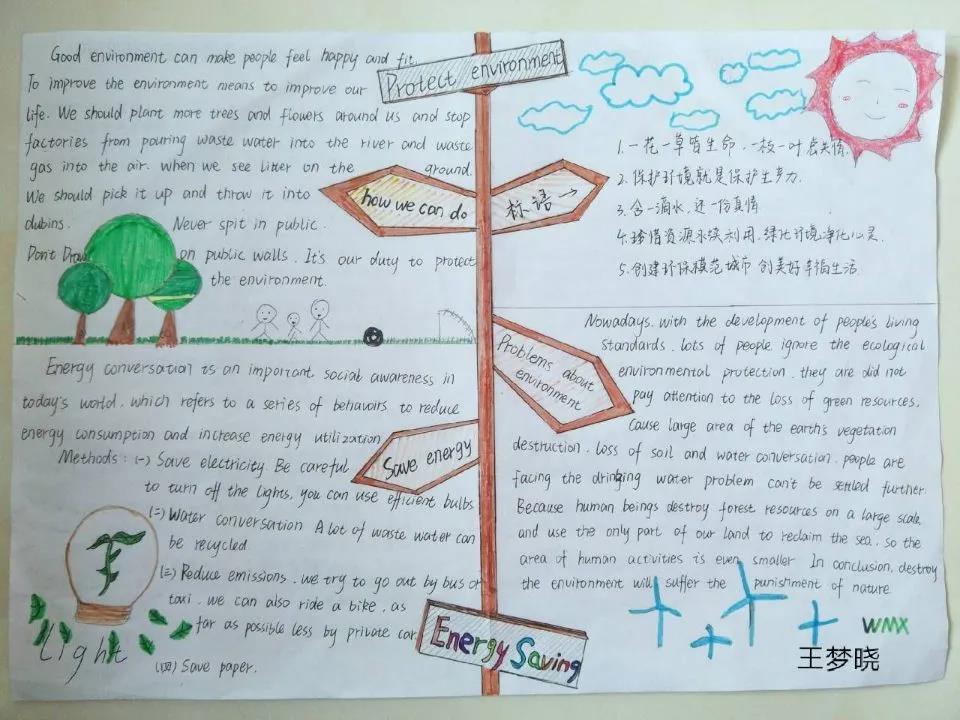 Protect environment
Good environment can make people feel happy and fit.
To improve the environment means to improve our
life. We should plant more trees and flowers around us and stop
factories from pouring waste water into the river and waste
gas into the air. when we see litter on the ground.
We should pick it up and throw it into
dubins. Never spit in public.
Don't Draw on public walls. It's our duty to protect
the environment.
how we can do
标语→
1.一花一草皆生命,一枝一叶总关情.
2.保护环境就是保护生产力.
3.含一滴水,还一份真情
4.珍惜资源永续利用,绿化环境净化心灵.
5.创建环保模范城市 创美好幸福生活.
Problems about
environment
Nowadays. with the development of people's living
standards. lots of people ignore the ecological
environmental protection. they are did not
pay attention to the loss of green resources.
cause large area of the earth's vegetation
destruction. loss of soil and water conversation. people are
facing the dringing water problem can't be settled further.
Because human beings destroy forest resources on a large scale
and use the only part of our land to reclaim the sea. so the
area of human activities is even smaller In conclusion, destroy
the environment will suffer the punishment of nature
Save energy
Energy conversation is an important social awareness in
today's world. which refers to a series of behavoirs to reduce
energy consumption and increase energy utilization
Methods: (一) Save electricity. Be careful
to turn off the lights, you can use efficient bulbs
(二) Water conversation A lot of waste water can
be recycled
(三) Reduce emissions. we try to go out by bus or
taxi. we can also ride a bike. as
far as possible less by private car
(四) Save paper.
light
Energy Saving
WMX
王梦晓